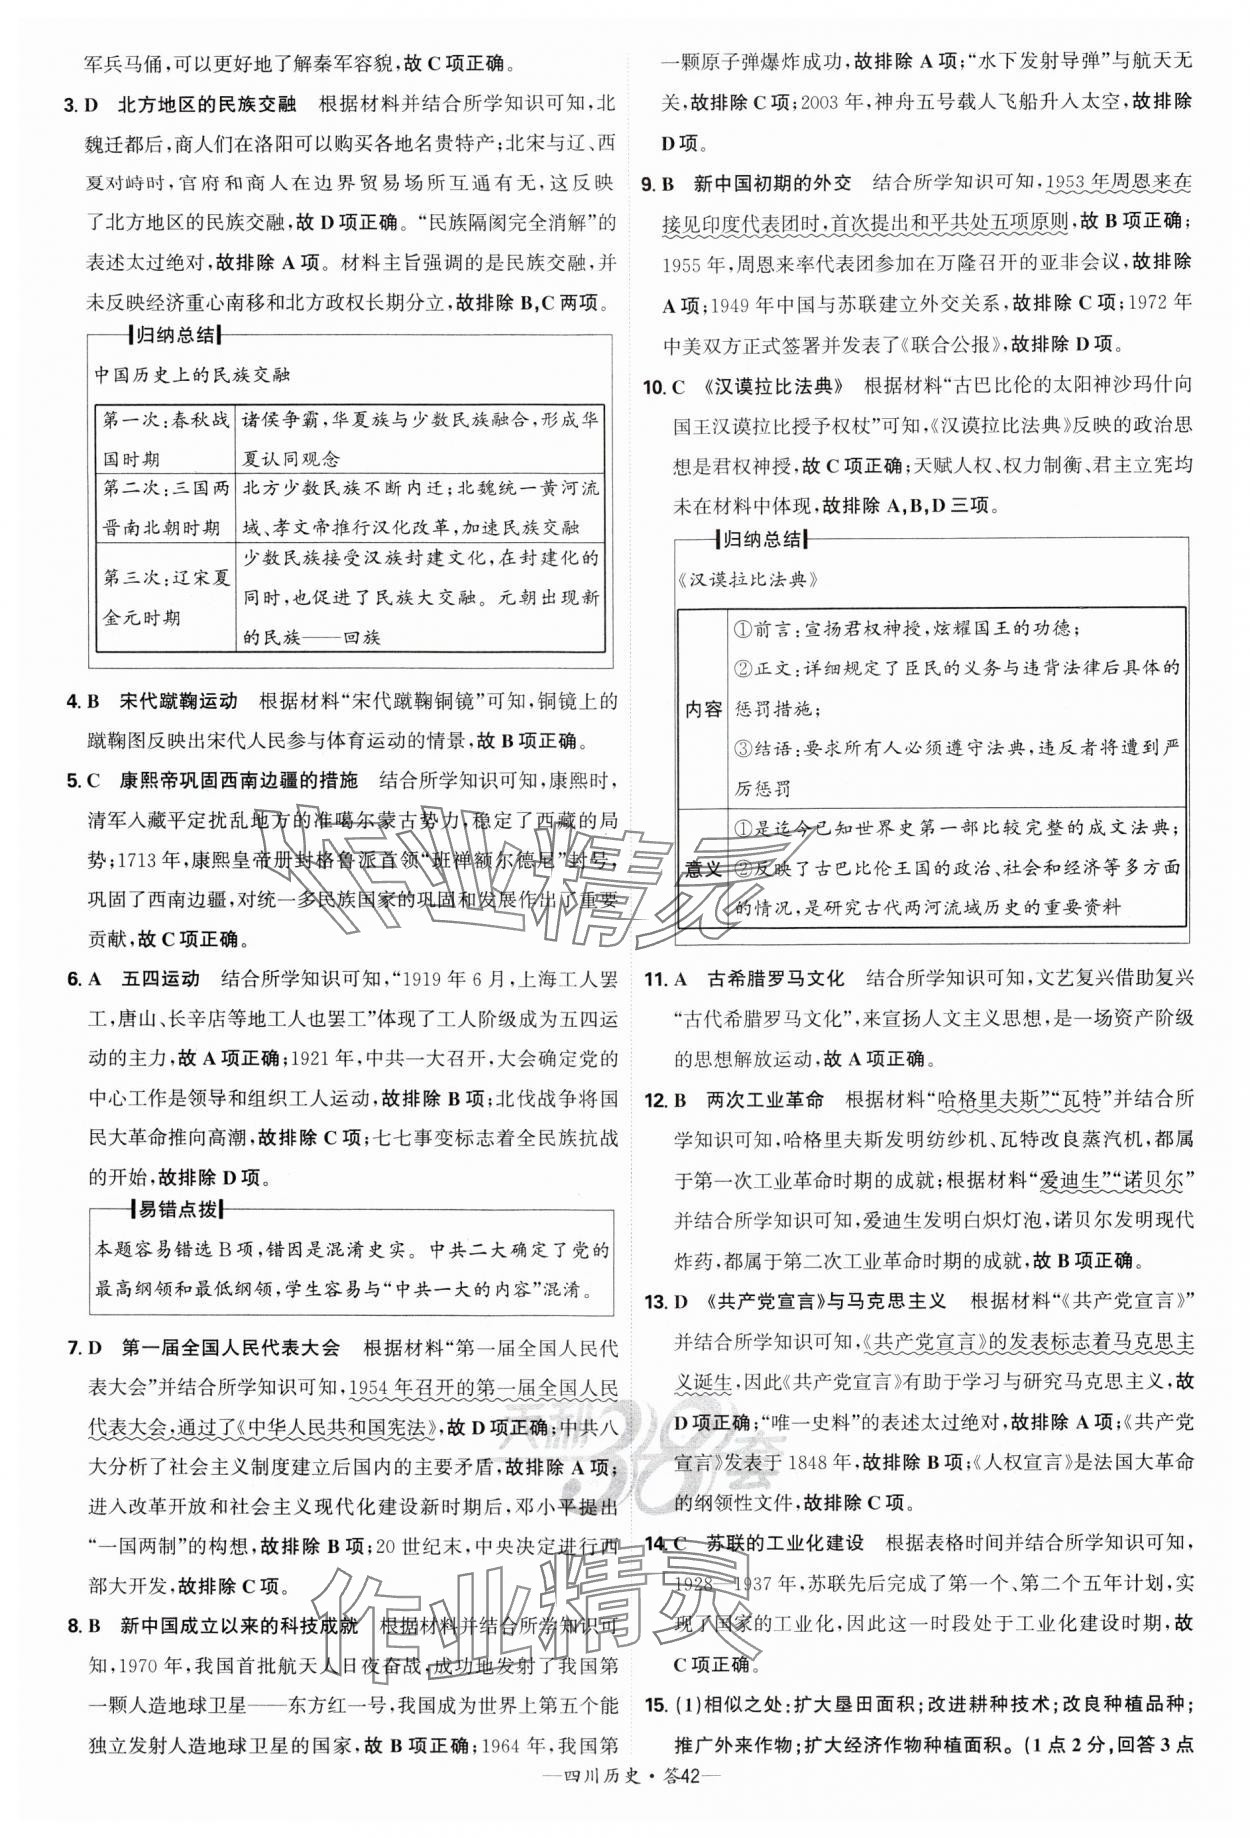 军兵马俑,可以更好地了解秦军容貌,故C项正确。
3. D 北方地区的民族交融 根据材料并结合所学知识可知,北
魏迁都后,商人们在洛阳可以购买各地名贵特产;北宋与辽、西
夏对峙时,官府和商人在边界贸易场所互通有无,这反映
了北方地区的民族交融,故D项正确。“民族隔阂完全消解”的
表述太过绝对,故排除A项。材料主旨强调的是民族交融,并
未反映经济重心南移和北方政权长期分立,故排除B,C两项。
归纳总结
中国历史上的民族交融
第一次:春秋战
国时期
诸侯争霸,华夏族与少数民族融合,形成华
夏认同观念
第二次:三国两
晋南北朝时期
北方少数民族不断内迁;北魏统一黄河流
域、孝文帝推行汉化改革,加速民族交融
第三次:辽宋夏
金元时期
少数民族接受汉族封建文化,在封建化的
同时,也促进了民族大交融。元朝出现新
的民族——回族
4. B 宋代蹴鞠运动 根据材料“宋代蹴鞠铜镜”可知,铜镜上的
蹴鞠图反映出宋代人民参与体育运动的情景,故B项正确。
5. C 康熙帝巩固西南边疆的措施 结合所学知识可知,康熙时,
清军入藏平定扰乱地方的准噶尔蒙古势力,稳定了西藏的局
势;1713年,康熙皇帝册封格鲁派首领“班禅额尔德尼”封号,
巩固了西南边疆,对统一多民族国家的巩固和发展作出了重要
贡献,故C项正确。
6. A 五四运动 结合所学知识可知,“1919年6月,上海工人罢
工,唐山、长辛店等地工人也罢工”体现了工人阶级成为五四运
动的主力,故A项正确;1921年,中共一大召开,大会确定党的
中心工作是领导和组织工人运动,故排除B项;北伐战争将国
民大革命推向高潮,故排除C项;七七事变标志着全民族抗战
的开始,故排除D项。
易错点拨
本题容易错选B项,错因是混淆史实。中共二大确定了党的
最高纲领和最低纲领,学生容易与“中共一大的内容”混淆。
7. D 第一届全国人民代表大会 根据材料“第一届全国人民代
表大会”并结合所学知识可知,1954年召开的第一届全国人民
代表大会,通过了《中华人民共和国宪法》,故D项正确;中共八
大分析了社会主义制度建立后国内的主要矛盾,故排除A项;
进入改革开放和社会主义现代化建设新时期后,邓小平提出
“一国两制”的构想,故排除B项;20世纪末,中央决定进行西
部大开发,故排除C项。
8. B 新中国成立以来的科技成就 根据材料并结合所学知识可
知,1970年,我国首批航天人日夜奋战,成功地发射了我国第
一颗人造地球卫星——东方红一号,我国成为世界上第五个能
独立发射人造地球卫星的国家,故B项正确;1964年,我国第
一颗原子弹爆炸成功,故排除A项;“水下发射导弹”与航天无
关,故排除C项;2003年,神舟五号载人飞船升入太空,故排除
D项。
9. B 新中国初期的外交 结合所学知识可知,1953年周恩来在
接见印度代表团时,首次提出和平共处五项原则,故B项正确;
1955年,周恩来率代表团参加在万隆召开的亚非会议,故排除
A项;1949年中国与苏联建立外交关系,故排除C项;1972年
中美双方正式签署并发表了《联合公报》,故排除D项。
10. C 《汉谟拉比法典》 根据材料“古巴比伦的太阳神沙玛什向
国王汉谟拉比授予权杖”可知,《汉谟拉比法典》反映的政治思
想是君权神授,故C项正确;天赋人权、权力制衡、君主立宪均
未在材料中体现,故排除A,B,D三项。
归纳总结
《汉谟拉比法典》
内容
①前言:宣扬君权神授,炫耀国王的功德;
②正文:详细规定了臣民的义务与违背法律后具体的
惩罚措施;
③结语:要求所有人必须遵守法典,违反者将遭到严
厉惩罚
意义
①是迄今已知世界史第一部比较完整的成文法典;
②反映了古巴比伦王国的政治、社会和经济等多方面
的情况,是研究古代两河流域历史的重要资料
11. A 古希腊罗马文化 结合所学知识可知,文艺复兴借助复兴
“古代希腊罗马文化”,来宣扬人文主义思想,是一场资产阶级
的思想解放运动,故A项正确。
12. B 两次工业革命 根据材料“哈格里夫斯”“瓦特”并结合所
学知识可知,哈格里夫斯发明纺纱机、瓦特改良蒸汽机,都属
于第一次工业革命时期的成就;根据材料“爱迪生”“诺贝尔”
并结合所学知识可知,爱迪生发明白炽灯泡,诺贝尔发明现代
炸药,都属于第二次工业革命时期的成就,故B项正确。
13. D 《共产党宣言》与马克思主义 根据材料“《共产党宣言》”
并结合所学知识可知,《共产党宣言》的发表标志着马克思主
义诞生,因此《共产党宣言》有助于学习与研究马克思主义,故
D项正确;“唯一史料”的表述太过绝对,故排除A项;《共产党
宣言》发表于1848年,故排除B项;《人权宣言》是法国大革命
的纲领性文件,故排除C项。
14. C 苏联的工业化建设 根据表格时间并结合所学知识可知,
1928—1937年,苏联先后完成了第一个、第二个五年计划,实
现了国家的工业化,因此这一时段处于工业化建设时期,故
C项正确。
15. (1)相似之处:扩大垦田面积;改进耕种技术;改良种植品种;
推广外来作物;扩大经济作物种植面积。(1点2分,回答3点
—四川历史·答42—
作业精灵
天利38套
作业精灵